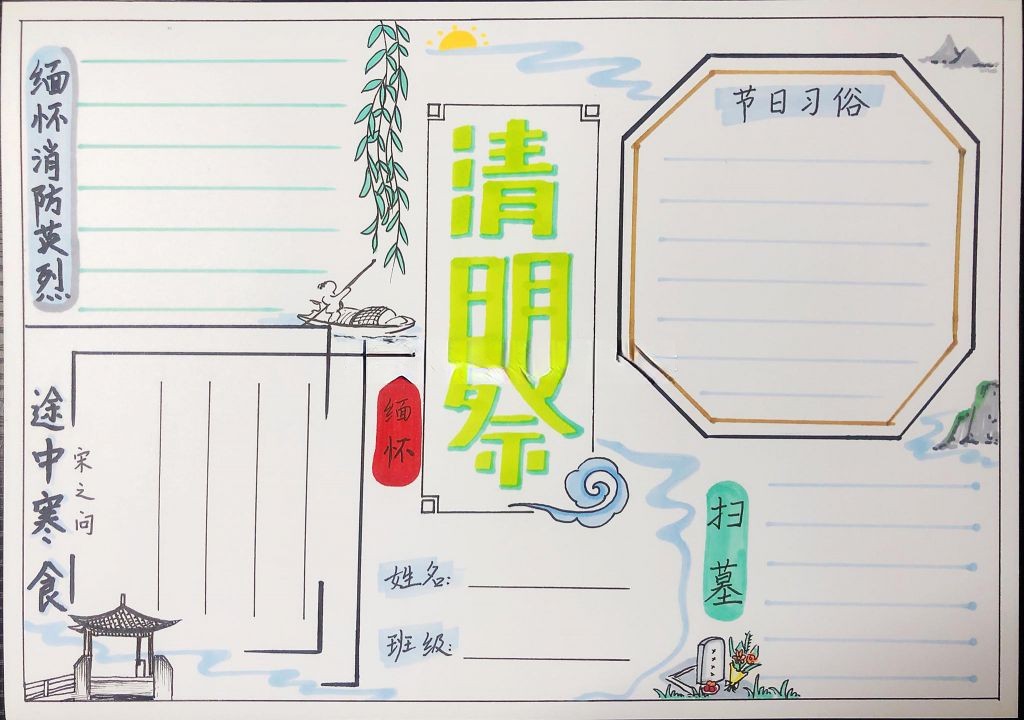 缅怀消防英烈
节日习俗
清明祭
缅怀
途中寒食
宋之问
扫墓
姓名:
班级: